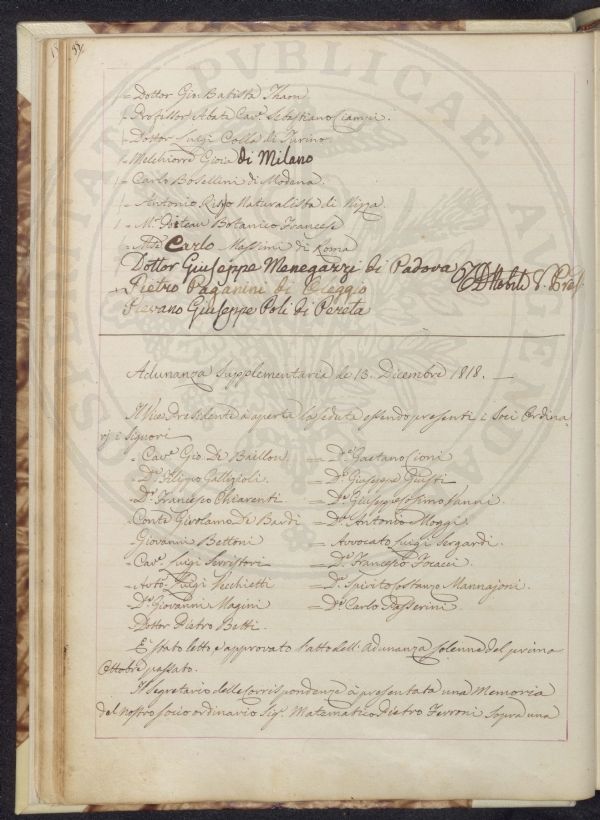 PUBLICAE
= Dottor Gio: Batista Thaon
= Professor Abate Cav. Sebastiano Ciampi.
= Dottor Luigi Colla di Turino
= Melchiorre Gioia di Milano
= Carlo Bosellini di Modena.
= Antonio Risso Naturalista di Nizza.
= Mr. Poiteau Botanico Francese
Carlo Massimi di Roma
Dottor Giuseppe Menegazzi di Padova
Pietro Paganini di Oleggio
Pievano Giuseppe Poli di Pereta
Adunanza Supplementaria de' 13. Dicembre 1818.
Il Vice Presidente à aperta la seduta essendo presenti i Soci Ordina-
rj i Signori
= Cav. Gio. De Baillou = Dr. Gaetano Cioni
= Dr. Filippo Gallizioli = Dr. Giuseppe Giusti
= Dr. Francesco Chiarenti = Dr. Giuseppe Ottimo Vanni
= Conte Girolamo De Bardi = Dr. Antonio Moggi
= Giovanni Bettoni = Avvocato Luigi Sergardi.
= Cav. Luigi Serristori = Dr. Francesco Focacci
= Luigi Vecchietti = Dr. Spirito Costanzo Mannajoni.
= Dr. Giovanni Magini = Dr. Carlo Passerini.
= Dottor Pietro Betti.
E' stato letto e approvato l'atto dell'Adunanza solenne del primo
Ottobre passato.
Il Segretario delle corrispondenze à presentata una Memoria
del nostro socio ordinario Sig. Matematico Pietro Ferroni sopra una